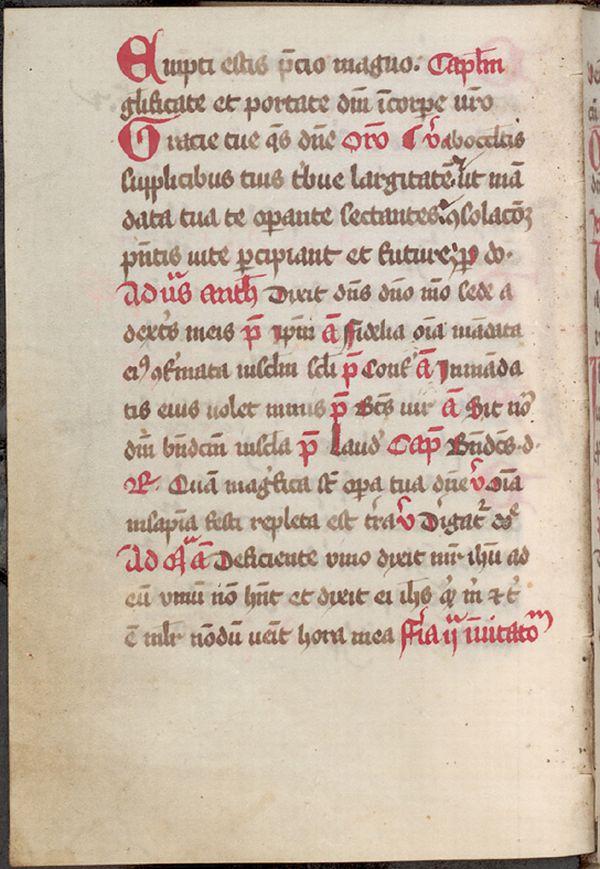 Empti estis p̄cio magno. Caplm̄
glificate et portate dm̄ ī corpe vr̄o
Gracie tue q̄s dn̄e Oro
supplicibus tuis t̄bue largitatē ut mā
data tua te operante sectantes
pn̄tis uite p̄cipiant et future
Ad vs̄ anth Dixit dn̄s dn̄o mō sede a
dext̄s meis p̄ ip̄m ā Fidelia oīa mādata
eiꝰ ꝯfirmata in sclm scli p̄ Conf ā In māda
tis eius uolet nimis p̄ Bt̄s uir ā Sit nō
dm̄ bn̄dcm̄ in scla p̄ Laud Cap̄ Bn̄dc̄s d.
R. Quā magᷝfica st̄ opa tua dn̄e v̄ oīa
in sapīa fecisti repleta est tr̄a v̄ Dīgat
Ad ā Deficiente vino dixit mr̄ ihū ad
eū vinū nō hn̄t et dixit ei ih̄s qͥ m̄ et t̄
ē mlr̄ nōdū uēit hora mea Fīa ij īuitatoᷓ